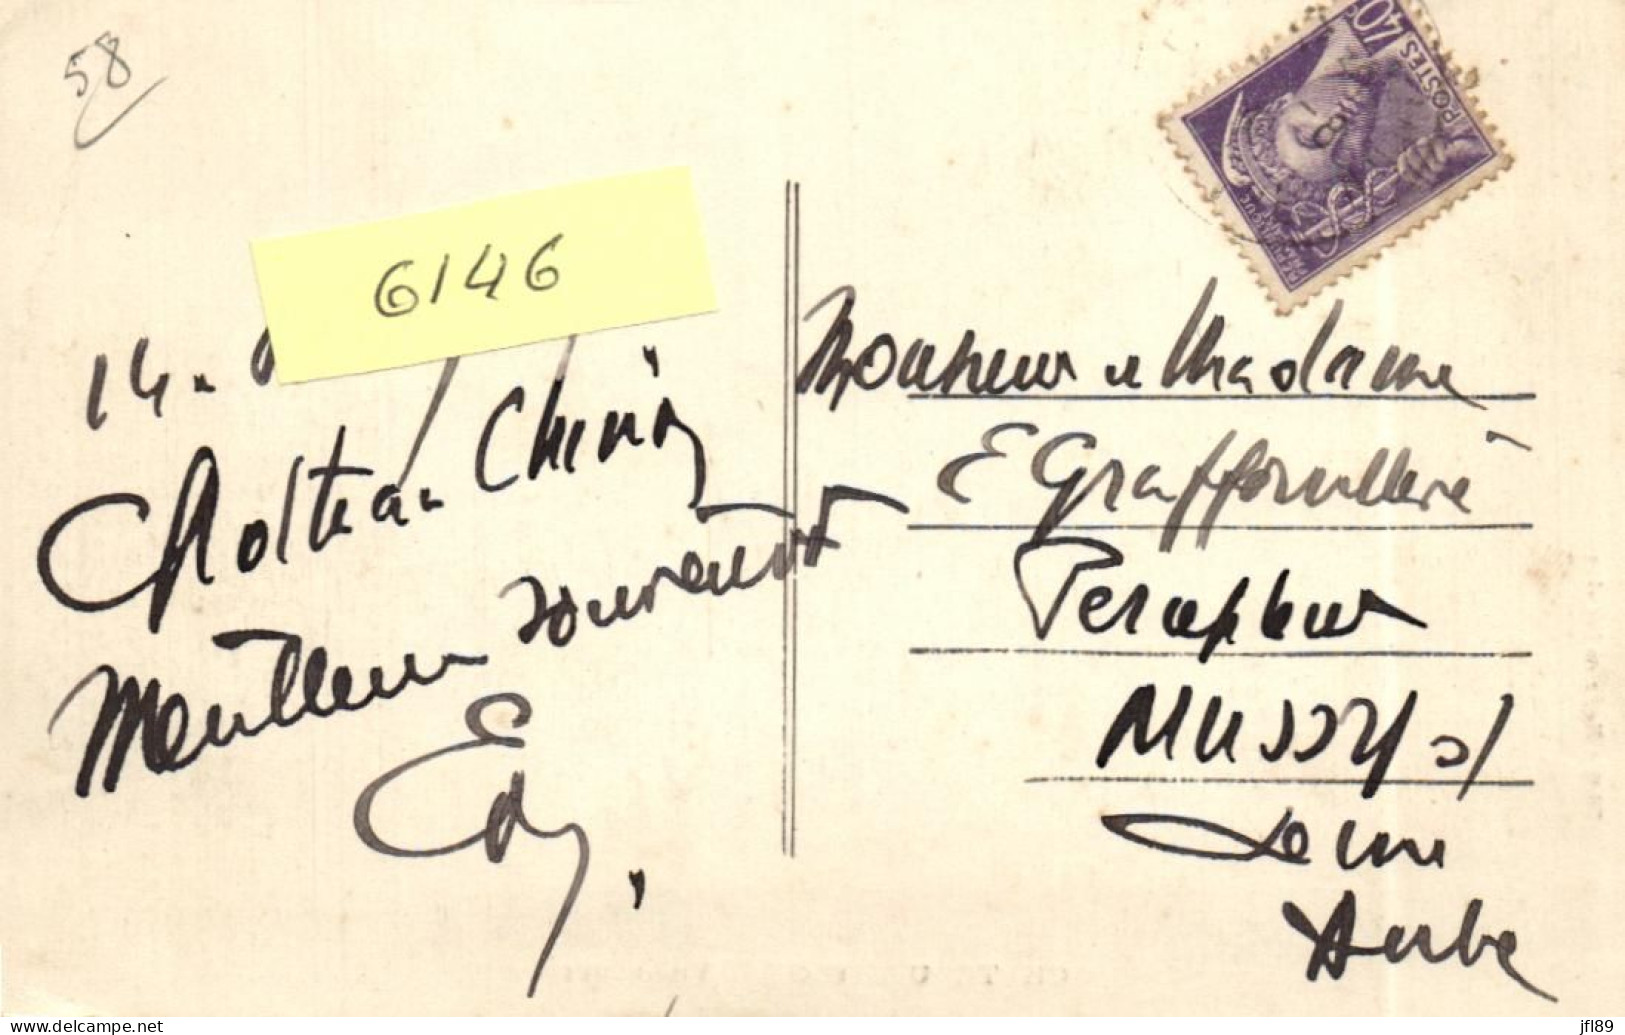 58
6146
14.
Chateau Chinon
Meilleurs souvenirs
Edy.
40c
POSTES
Monsieur et Madame
E Graffouillère
Percepteur
MUSSY s/
Seine
Aube
delcampe.net
jfl89